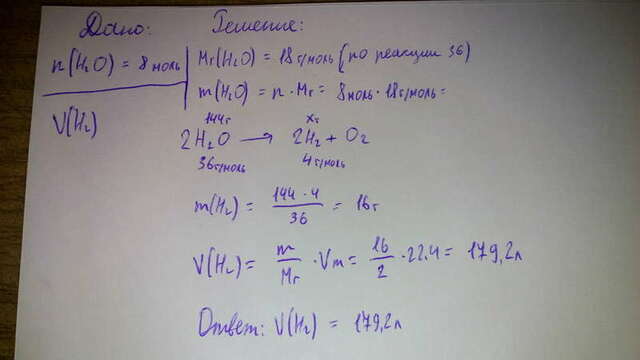 Дано:
Решение:
n(H₂O) = 8 моль
Mr(H₂O) = 18 г/моль (по реакции 36)
m(H₂O) = n · Mr = 8 моль · 18 г/моль =
V(H₂)
144г xг
2H₂O → 2H₂ + O₂
36 г/моль 4 г/моль
m(H₂) = 144 · 4 / 36 = 16г
V(H₂) = m / Mr · Vm = 16 / 2 · 22.4 = 179,2л
Ответ: V(H₂) = 179,2л